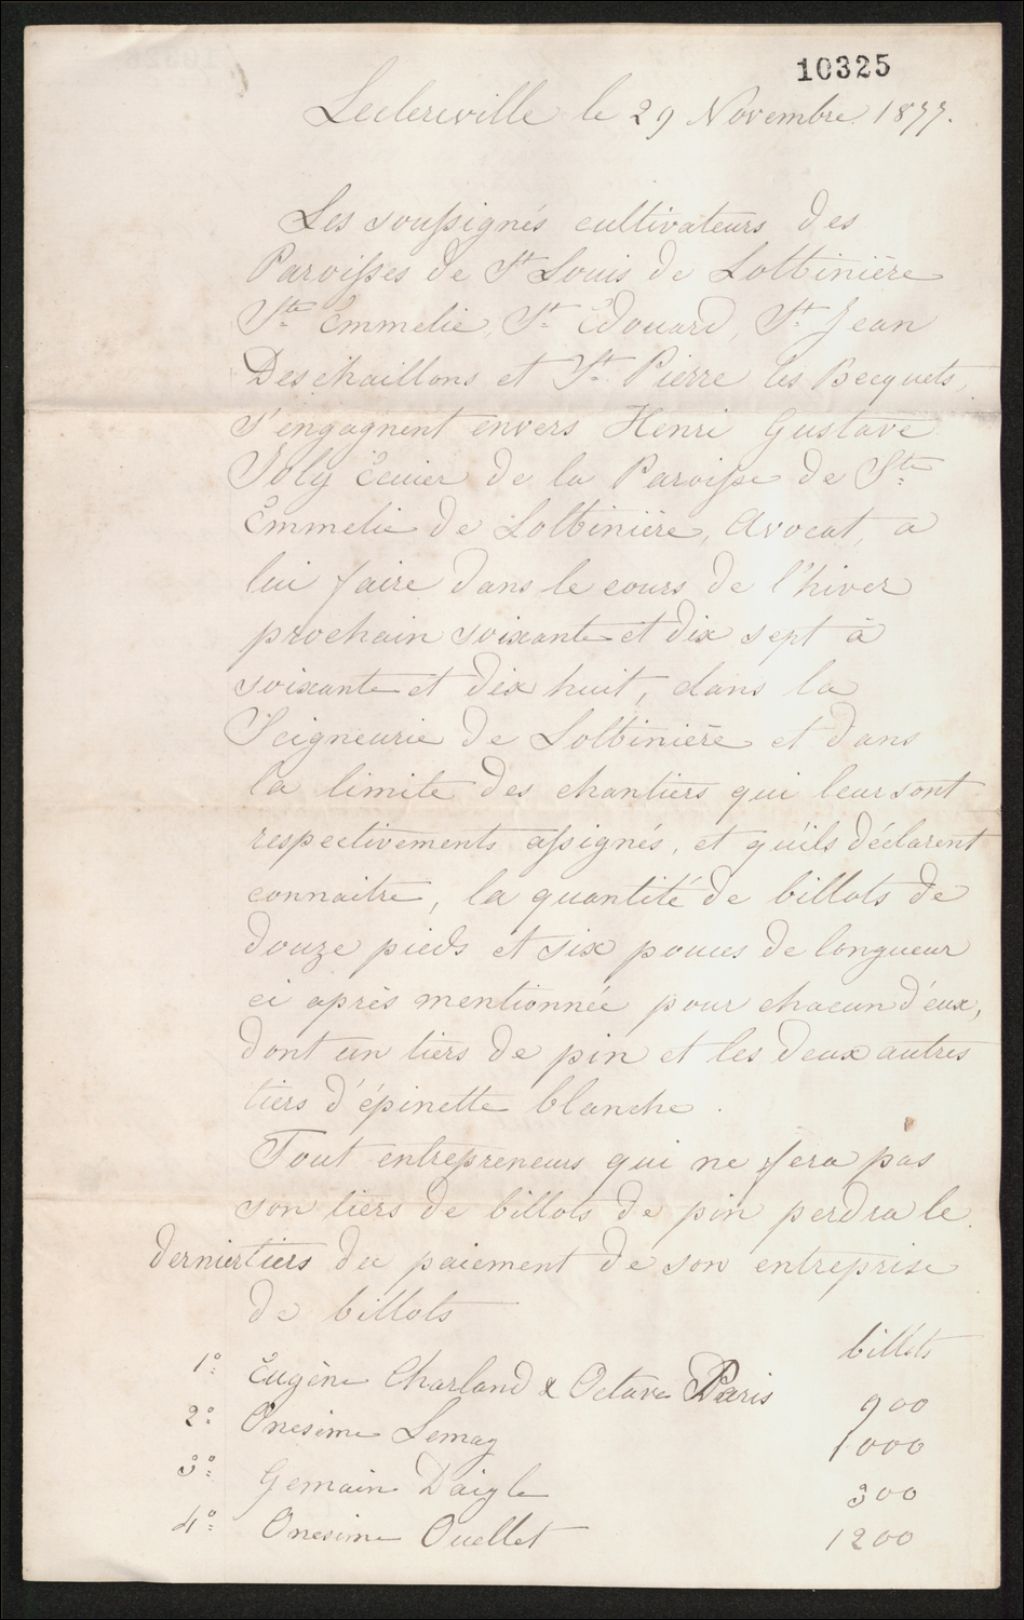 10325
Leclercville le 29 Novembre 1877.
Les soussignés cultivateurs des
Paroisses de St Louis de Lotbinière
Ste Emmelie, St Edouard, St Jean
Deschaillons et St Pierre les Becquets,
s'engagnent envers Henri Gustave
Joly Ecuier de la Paroisse de Ste
Emmelie de Lotbinière, Avocat, a
lui faire dans le cours de l'hiver
prochain soixante et dix sept à
soixante et dix huit, dans la
Seigneurie de Lotbinière et dans
la limite des chantiers qui leur sont
respectivements assignés, et qu'ils déclarent
connaitre, la quantité de billots de
douze pieds et six pouces de longueur
ci après mentionnée pour chacun d'eux,
dont un tiers de pin et les deux autres
tiers d'épinette blanche.
Tout entrepreneurs qui ne fera pas
son tiers de billots de pin perdra le
dernier tiers du paiement de son entreprise
de billots
billots
1º Eugène Charland & Octave Paris 900
2º Onesime Lemay 1000
3º Gemain Daigle 300
4º Onesime Ouellet 1200